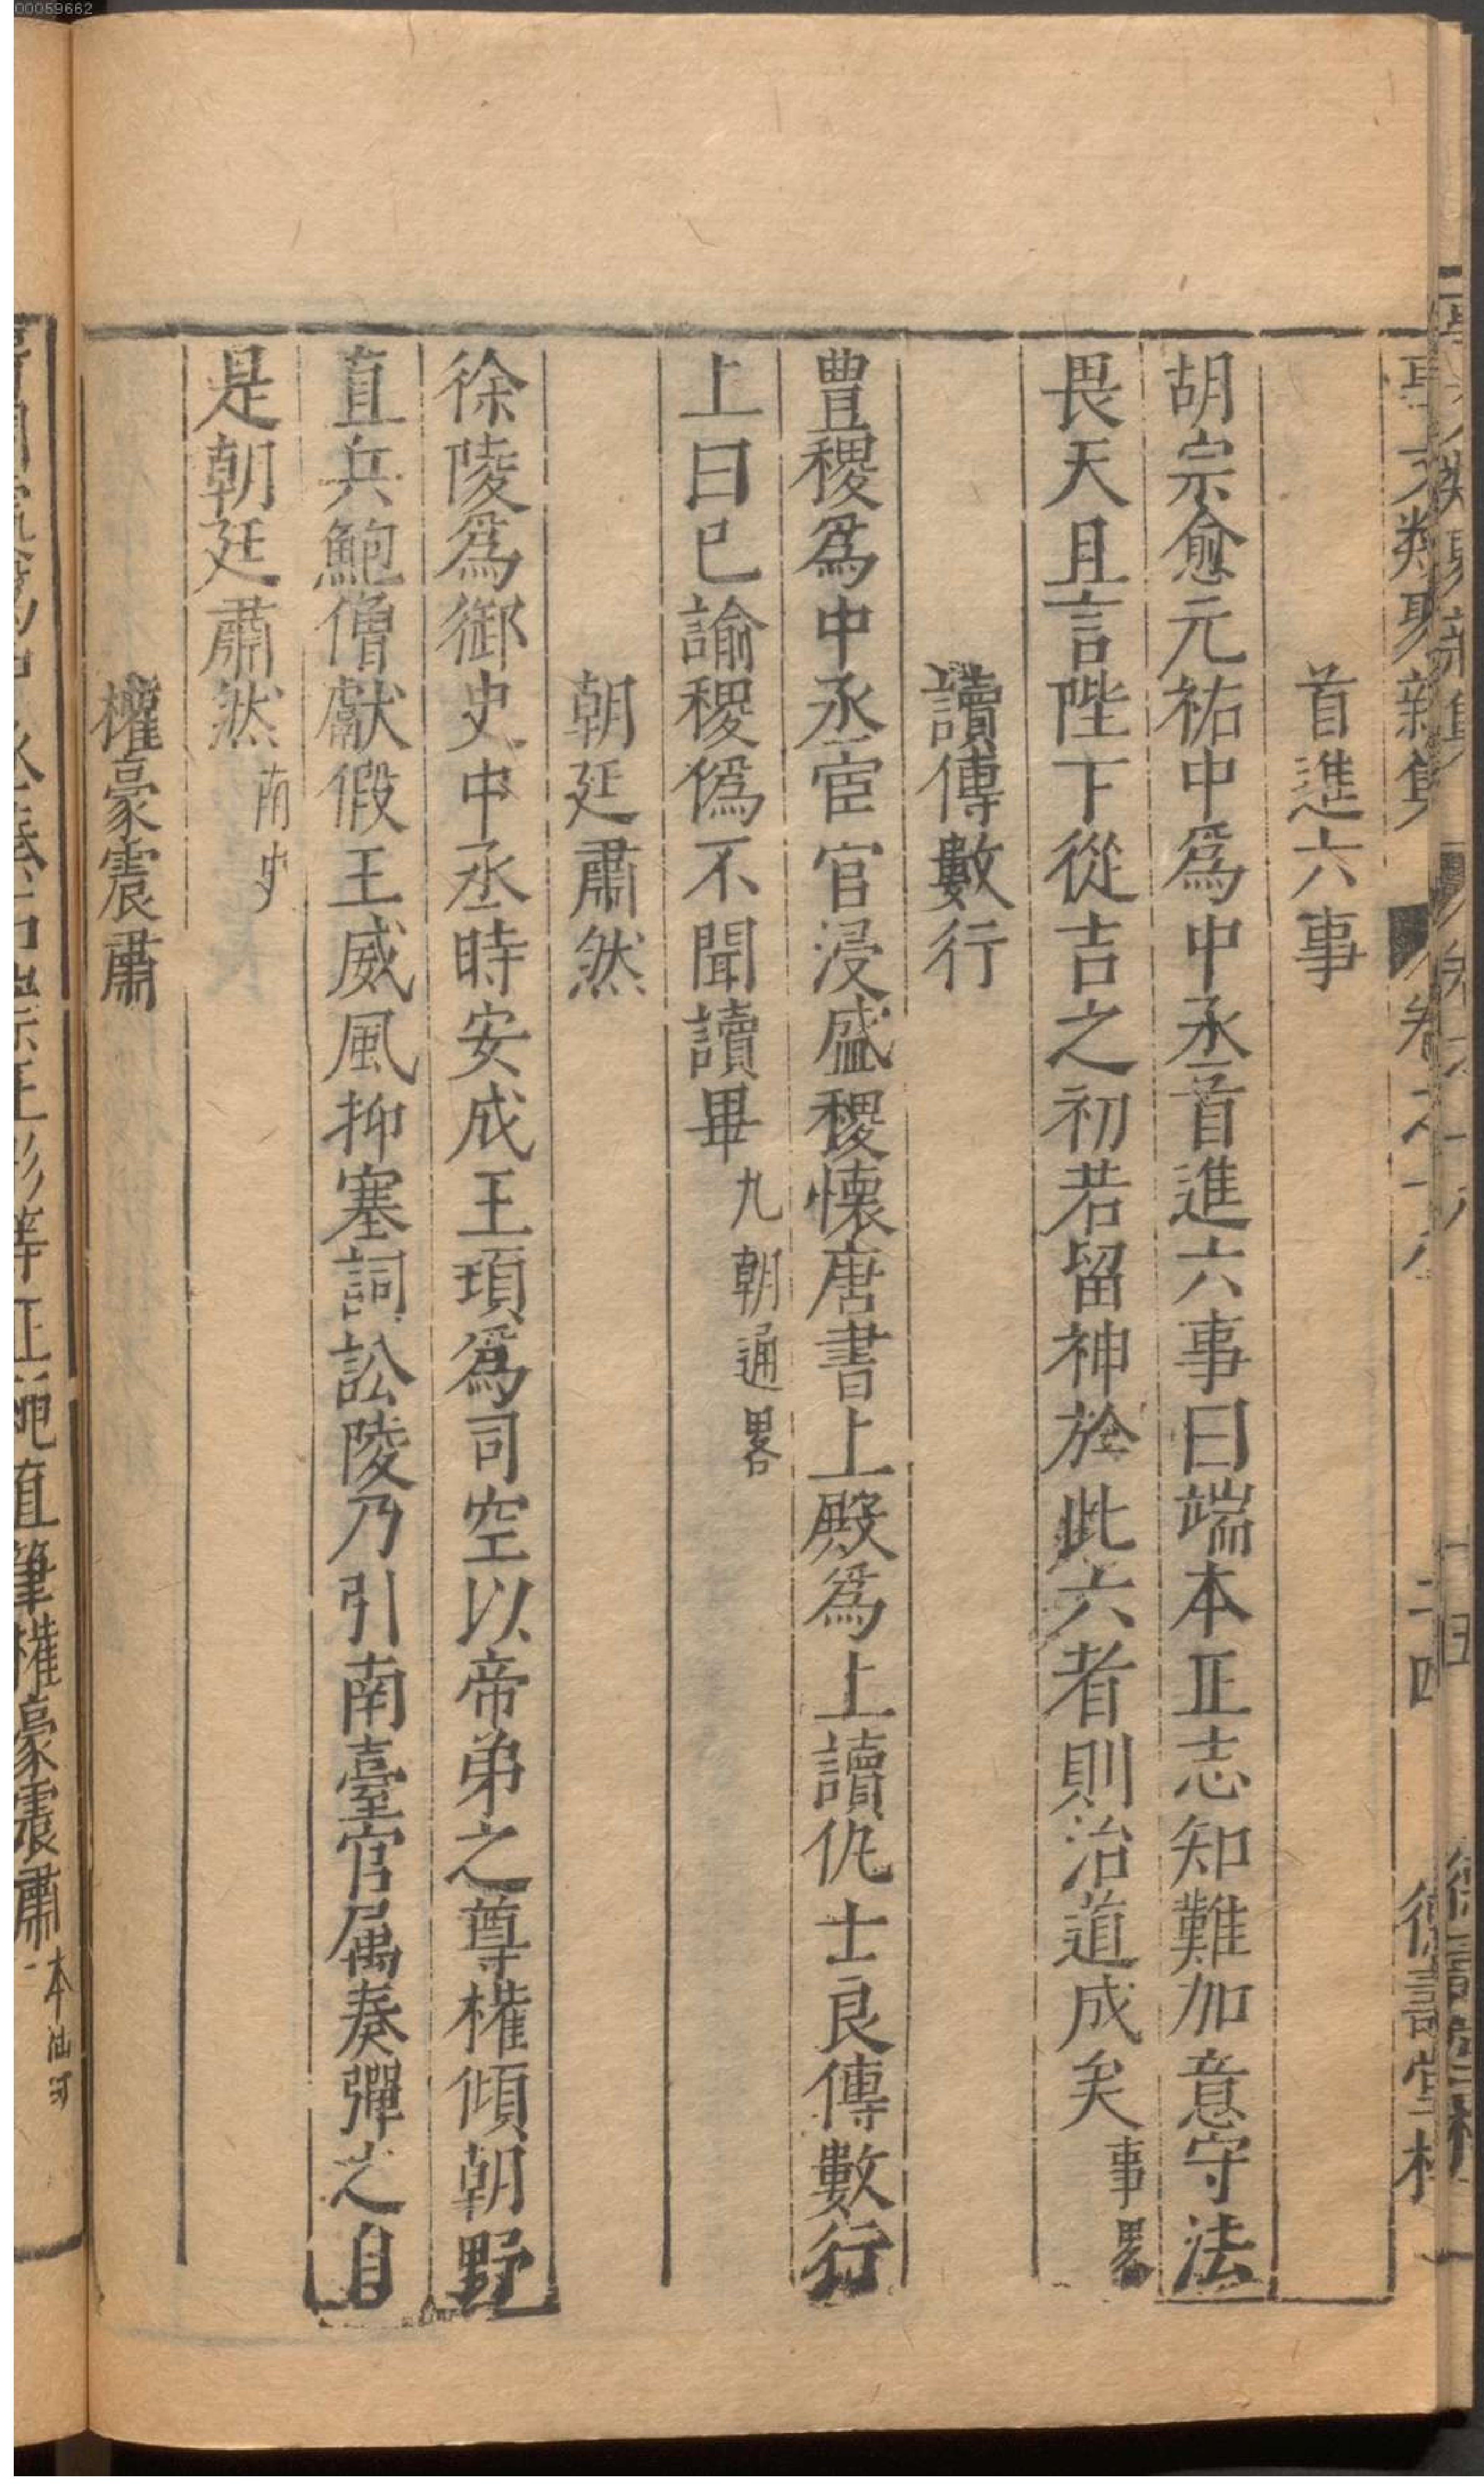 00059662
首進六事
胡宗愈元祐中爲中丞首進六事曰端本正志知難加意守法
畏天且言陛下從吉之初若留神於此六者則治道成矣事畧
讀傳數行
豊稷爲中丞宦官浸盛稷懐唐書上殿爲上讀仇士良傳數行
上曰已諭稷偽不聞讀畢九朝通畧
朝廷肅然
徐陵爲御史中丞時安成王頊爲司空以帝弟之尊權傾朝野
直兵鮑僧獻假王威風抑塞詞訟陵乃引南臺官属奏彈之自
是朝廷肅然南史
權豪震肅
直筆權豪震肅